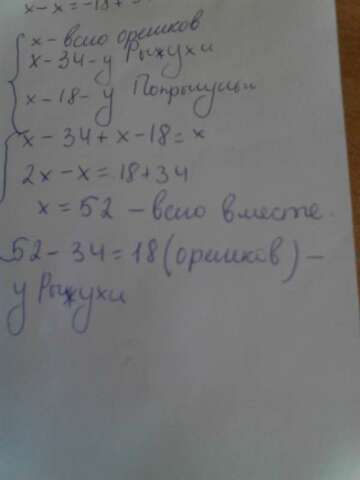 x-x=-18+3
x - всю орешков
x-34-у Рыжухи
x-18- у Попрыгуньи
x-34+x-18=x
2x-x=18+34
x=52 - всю вместе.
52-34=18(орешков)-
у Рыжухи